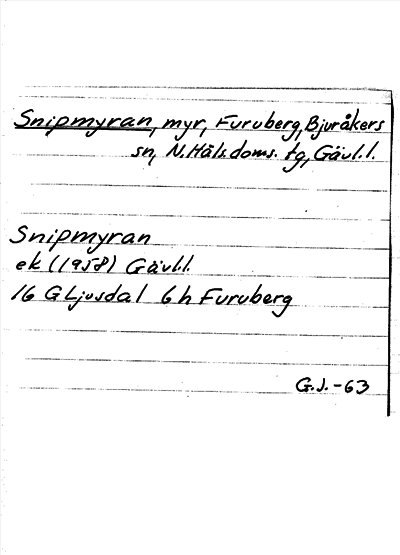 Snipmyran, myr, Furuberg, Bjuråkers
sn, N.Häls.doms. tg, Gävl.l.
Snipmyran
ek (1958) Gävl.l.
16 G Ljusdal 6 h Furuberg
G.J.-63